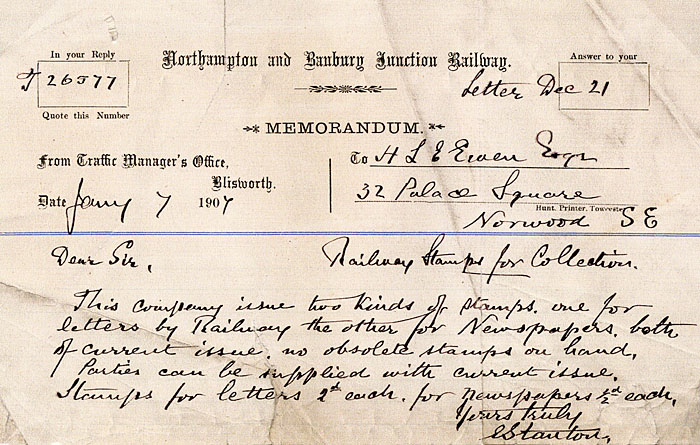 In your Reply
T 26577
Quote this Number
Northampton and Banbury Junction Railway.
Answer to your
Letter Dec 21
MEMORANDUM.
From Traffic Manager's Office,
Blisworth.
Date Jany 7 1907
To H L'E Ewen Esqr
32 Palace Square
Hunt. Printer. Towcester
Norwood S E
Dear Sir,
Railway Stamps for Collection.
This company issue two kinds of stamps. one for
letters by Railway the other for Newspapers. both
of current issue. no obsolete stamps on hand.
Parties can be supplied with current issue.
Stamps for letters 2d each. for newspapers ½d each.
Yours truly
E Stanton.